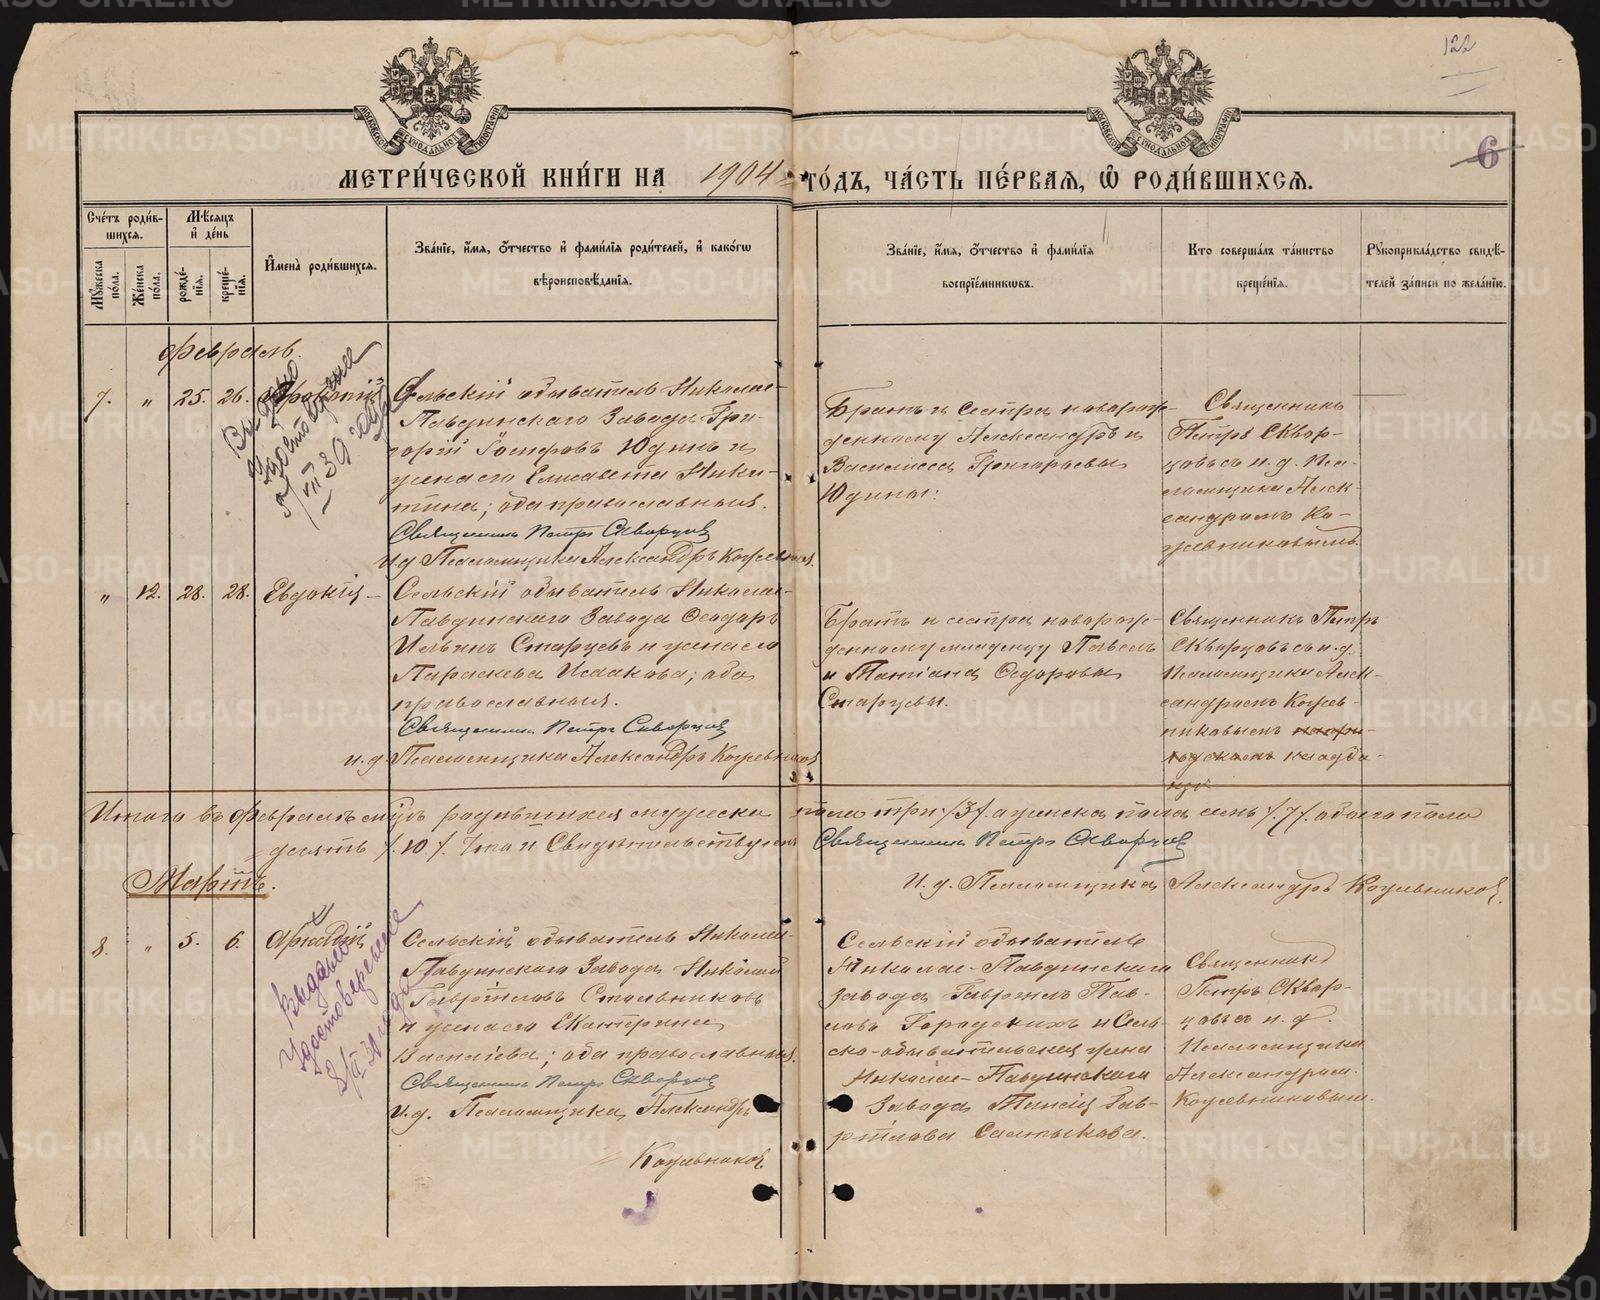 122
6
МЕТРИ́ЧЕСКОЙ КНИ́ГИ НА 1904 ГО́ДЪ, ЧА́СТЬ ПЕ́РВАЯ, Ѡ РОДИ́ВШИХСЯ.
Сче́тъ роди́в-
шихся.
Мѣ́сяцъ
и҆ де́нь
Мꙋ́жеска
по́ла.
Же́нска
по́ла.
рожде́-
нїя.
креще́-
нїя.
И҆мена̀ роди́вшихся.
Зва́нїе, и҆́мя, ѻ҆́тчество и҆ фами́лїя роди́телей, и҆ како́гѡ
вѣроисповѣ́данїя.
Зва́нїе, и҆́мя, ѻ҆́тчество и҆ фами́лїя
воспрїе́мникѡвъ.
Кто̀ соверша́лъ та́инство
креще́нїя.
Рꙋкоприкла́дство свидѣ́-
телей за́писи по жела́нїю.
Февраль.
7. „ 25. 26.
Сельскій обыватель Николае-
Павдинскаго Завода Гри-
горій Іосифовъ Юдинъ и
жена его Елисавета Ники-
тина; оба православныя.
Священникъ Петръ Скворцовъ
и.д. Псаломщика Александръ Кожевников.
Братъ и Сестра новорож-
денному Александръ и
Василиса Григорьевы
Юдины.
Священникъ
Петръ Сквор-
цовъ съ и. д. Пса-
ломщика Алек-
сандромъ Ко-
жевниковымъ.
Выдано
удостоверение
5/VII 30 года
„ 12. 28. 28. Евдокія
Сельскій обыватель Николае-
Павдинскаго Завода Ѳеодоръ
Ильинъ Старцевъ и жена его
Параскева Исакова; оба
православныя.
Священникъ Петръ Скворцов
и.д. Псаломщика Александръ Кожевников
Братъ и сестра новорож-
денному младенцу Павелъ
и Татіана Ѳедоровы
Старцевы.
Священникъ Петръ
Скворцовъ съ и.д.
Псаломщика Алек-
сандромъ Кожев-
никовымъ
Итого въ Февралѣ м-цѣ родившихся мужеска пола три /3/. а женска пола семь /7/. обоего пола
десять /10/. Что и Свидетельствуемъ Священникъ Петръ Скворцов
И. д. Псаломщика Александръ Кожевников.
Мартъ.
8. „ 5. 6. Аркадій
Сельскій обыватель Николае-
Павдинскаго Завода Николай
Гавріиловъ Стальниковъ
и жена его Екатерина
; оба православныя.
Священникъ Петръ Скворцов
и.д. Псаломщика Александръ
Кожевников
Сельскій обыватель
Николае-Павдинскаго
завода Гавріилъ Пав-
ловъ Городскихъ и Сель-
ско-обывательская жена
Николае-Павдинскаго
Завода Гав-
ріилова Салтыкова.
Священникъ
Петръ Сквор-
цовъ съ и. д.
Псаломщика
Александром.
Кожевниковым.
Выдано
удостоверение